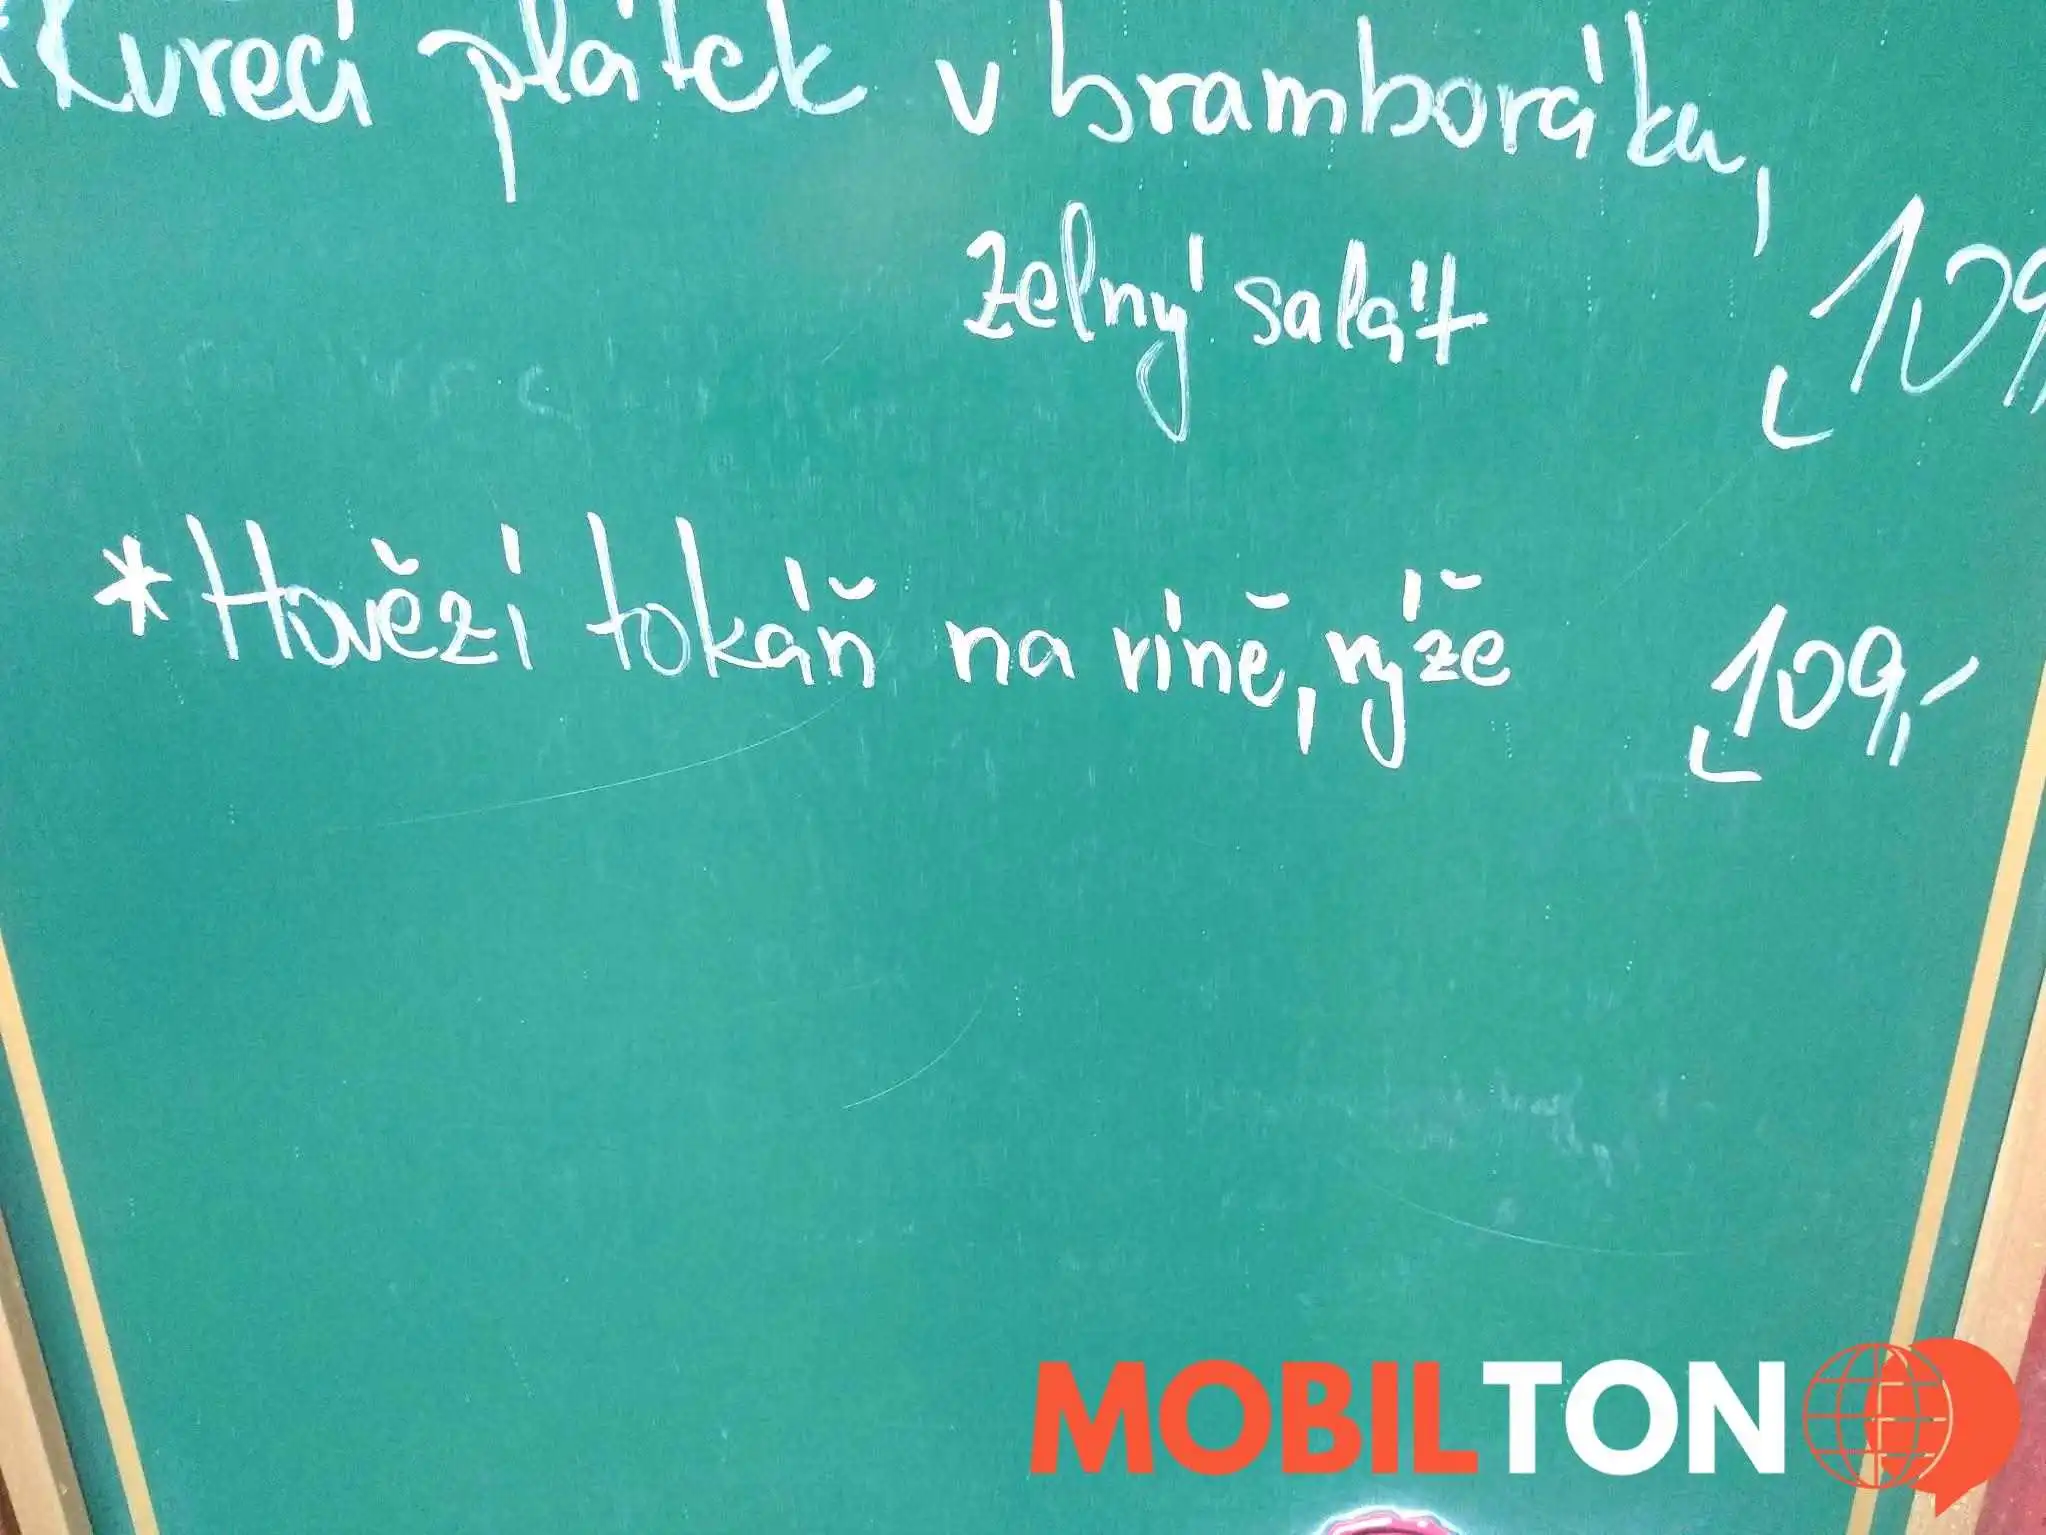 *Kuřecí plátek v bramboráku,
zelný salát 109,
*Hovězí tokáň na víně, rýže 109,-
MOBILTON